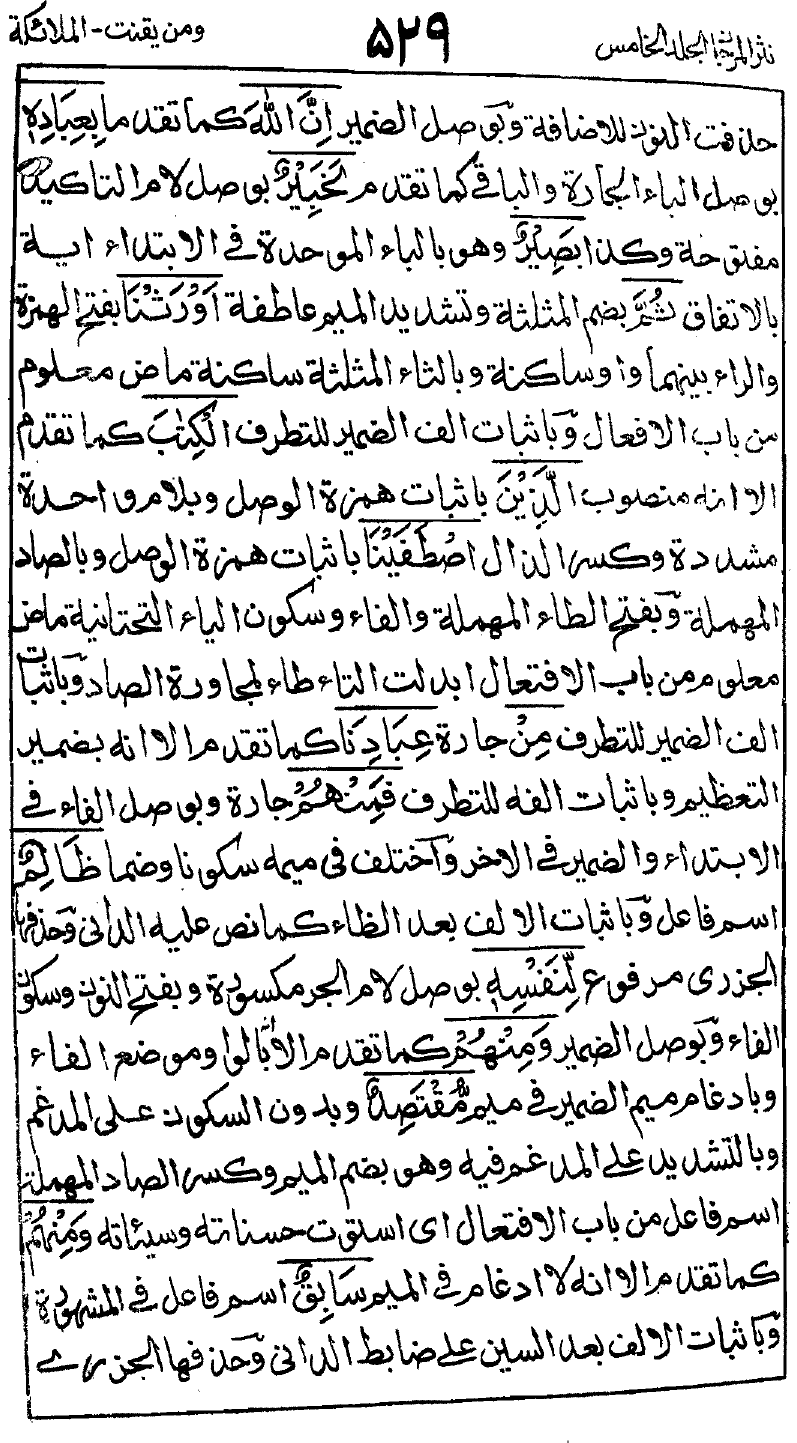 نثر المرجان المجلد الخامس ۵۲۹ ومن يقنت - الملائكة
حذفت النون للاضافة وبوصل الضمير إِنَّ اللهَ كما تقدم ما بِعِبَادِهِ
بوصل الباء الجارة والباقي كما تقدم لَخَبِيْرٌ بوصل لام التاكيد
مفتوحة وكذا بَصِيْرٌ وهو بالباء الموحدة في الابتداء اية
بالاتفاق ثُمَّ بضم المثلثة وتشديد الميم عاطفة اَوْرَثْنَا بفتح الهمزة
والراء بينهما واو ساكنة وبالثاء المثلثة ساكنة ماض معلوم
من باب الافعال وباثبات الف الضمير للتطرف الْكِتٰبَ كما تقدم
الا انه منصوب الَّذِيْنَ باثبات همزة الوصل وبلام واحدة
مشددة وكسر الذال اصْطَفَيْنَا باثبات همزة الوصل وبالصاد
المهملة وبفتح الطاء المهملة والفاء وسكون الياء التحتانية ماض
معلوم من باب الافتعال ابدلت التاء طاء لمجاورة الصاد وباثبات
الف الضمير للتطرف مِنْ جارة عِبَادِنَا كما تقدم الا انه بضمير
التعظيم وباثبات الفه للتطرف فَمِنْهُمْ جارة وبوصل الفاء في
الابتداء والضمير في الاخر واختلف في ميمه سكونا وضما ظَالِمٌ
اسم فاعل وباثبات الالف بعد الظاء كما نص عليه الداني وحذفها
الجزري مرفوع لِّنَفْسِهٖ بوصل لام الجر مكسورة وبفتح النون وسكون
الفاء وبوصل الضمير وَمِنْهُمْ كما تقدم الا بالواو موضع الفاء
وبادغام ميم الضمير في ميم مُّقْتَصِدٌ وبدون السكون على المدغم
وبالتشديد على المدغم فيه وهو بضم الميم وكسر الصاد المهملة
اسم فاعل من باب الافتعال اى استوت حسناته وسيئاته وَمِنْهُمْ
كما تقدم الا انه لا ادغام في الميم سَابِقٌ اسم فاعل في المشهورة
وباثبات الالف بعد السين على ضابط الداني وحذفها الجزرے